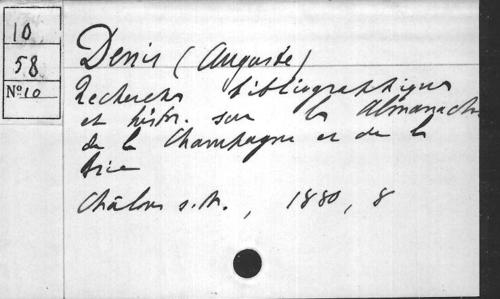 10
58
No 10
Denis (Auguste)
Recherches bibliographiques
et histor. sur les Almanachs
de la Champagne et de la
Brie
Châlons s. M., 1880, 8